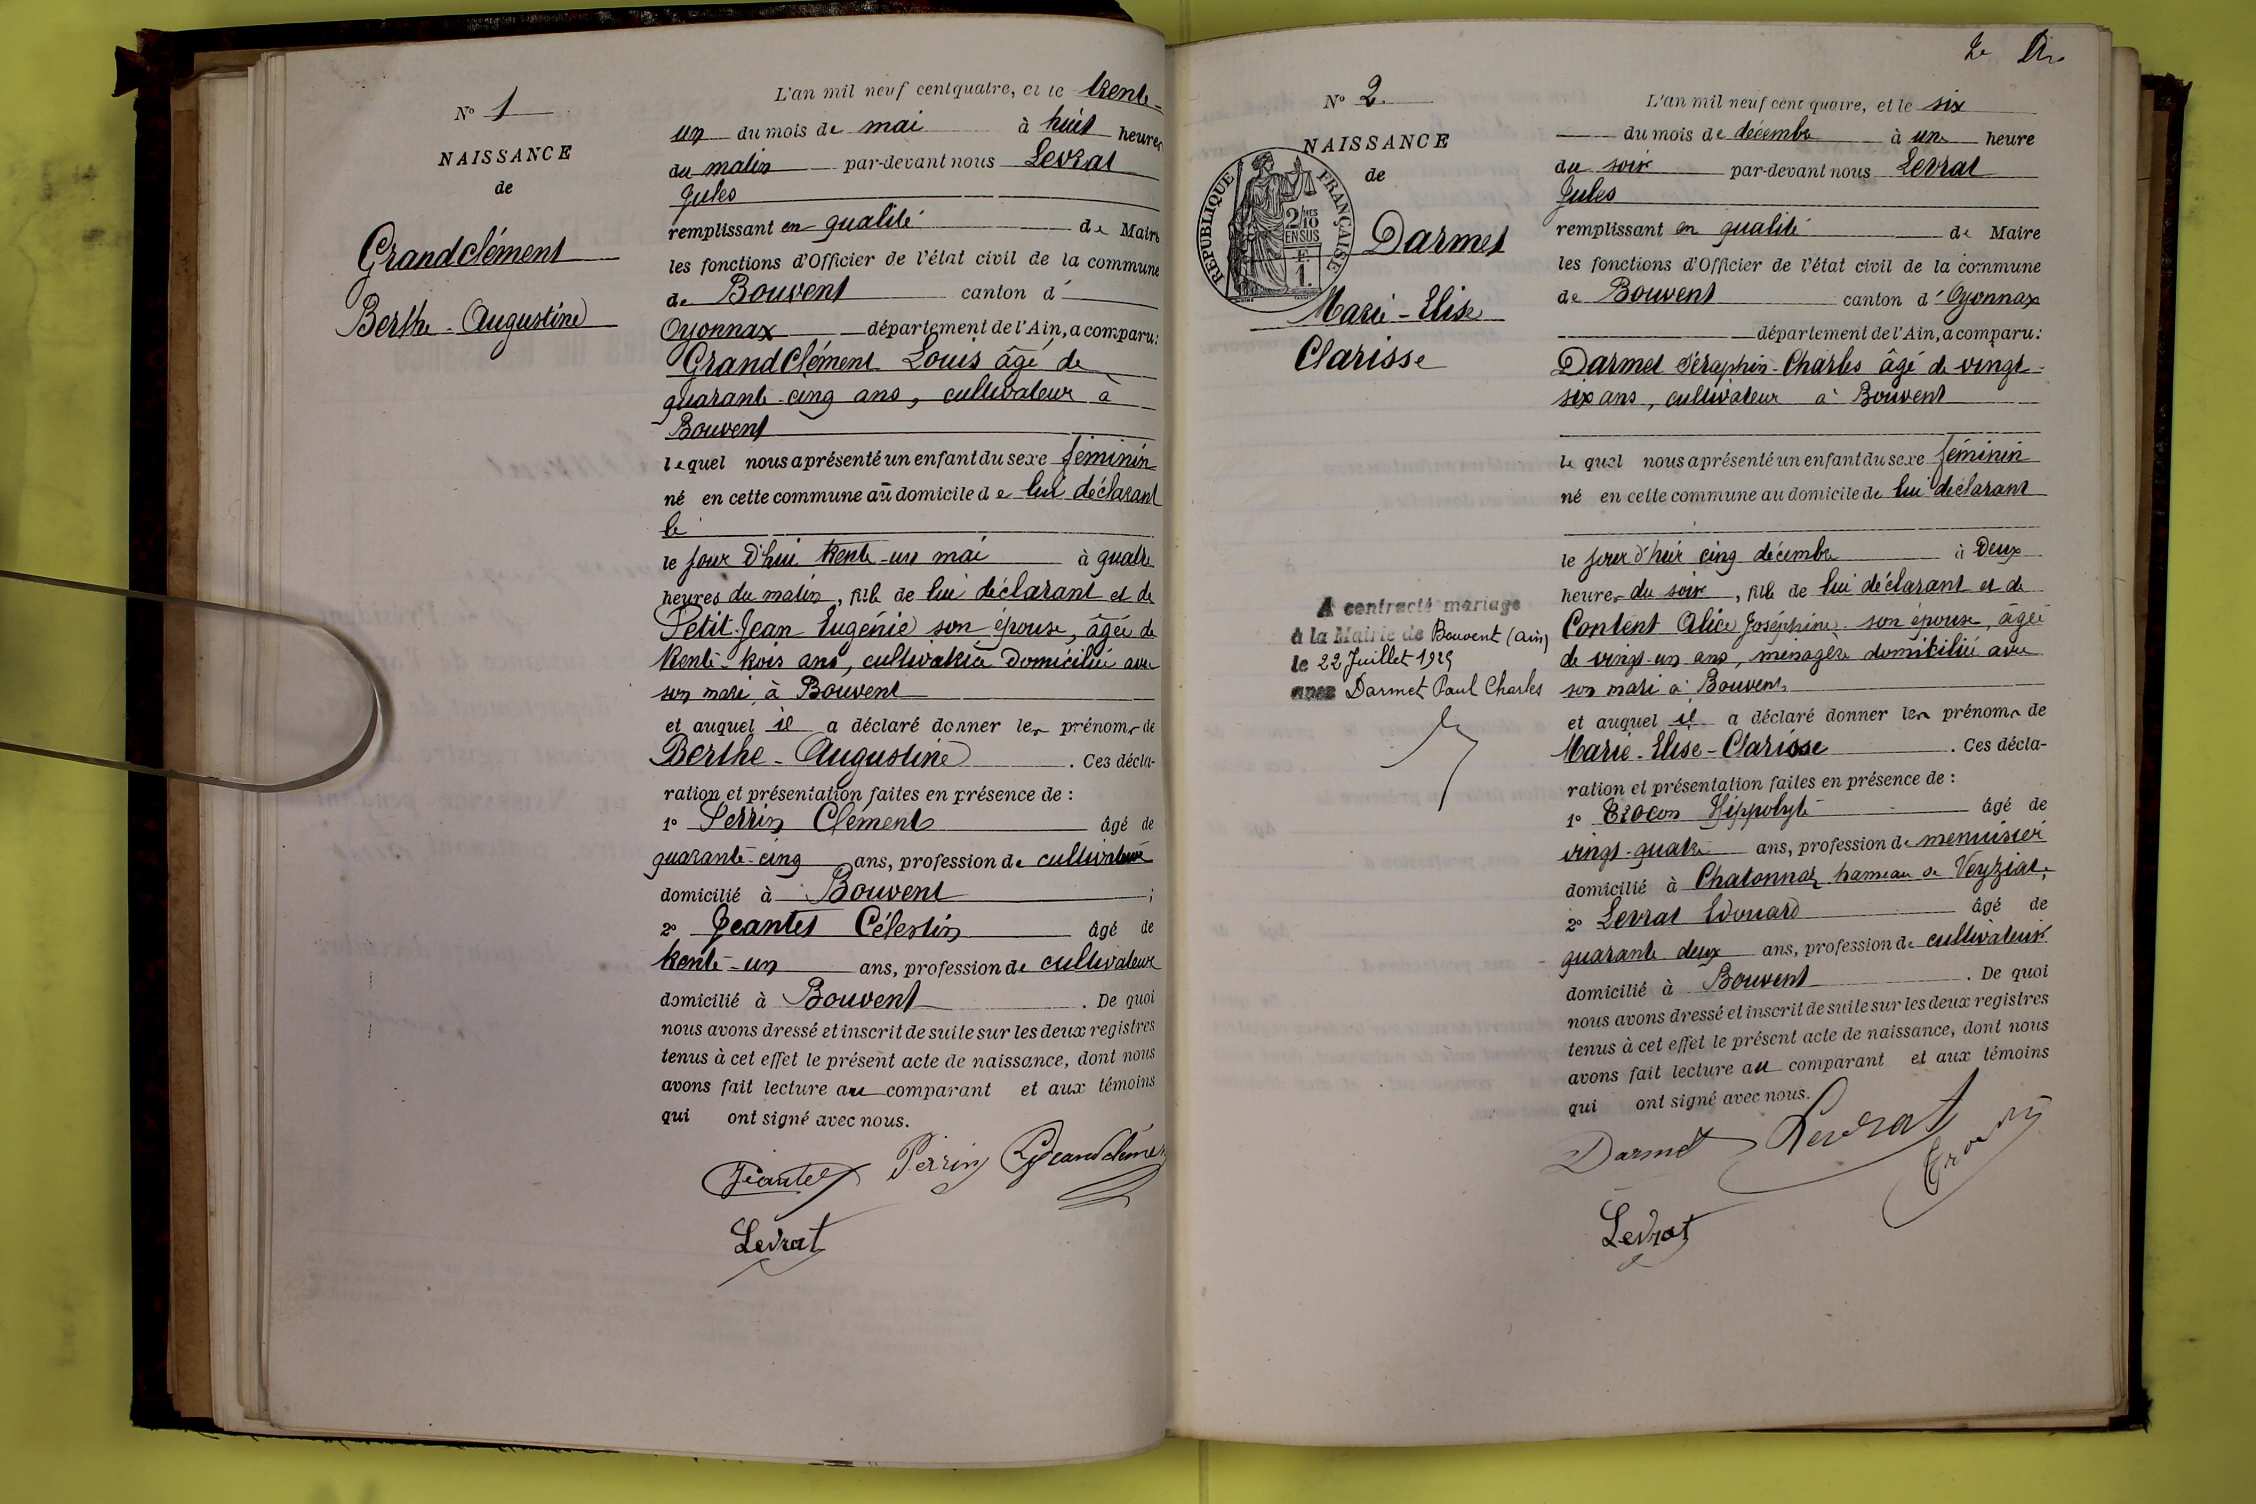 N° 1
NAISSANCE
de
Grandclément
Berthe - Augustine
L'an mil neuf cent quatre, et le trente-
un du mois de mai à huit heures
du matin par-devant nous Levrat
Jules
remplissant en qualité de Maire
les fonctions d'Officier de l'état civil de la commune
de Bouvent canton d'
Oyonnax département de l'Ain, a comparu:
Grandclément Louis âgé de
quarante-cinq ans, cultivateur à
Bouvent
lequel nous a présenté un enfant du sexe féminin
né en cette commune au domicile de lui déclarant
le
le jour d'hui trente-un mai à quatre
heures du matin, fille de lui déclarant et de
Petit-Jean Eugénie son épouse, âgée de
trente-trois ans, cultivatrice domiciliée avec
son mari, à Bouvent
et auquel il a déclaré donner les prénoms de
Berthe - Augustine. Ces décla-
ration et présentation faites en présence de :
1° Perrin Clément âgé de
quarante-cinq ans, profession de cultivateur
domicilié à Bouvent ;
2° Jeantet Célestin âgé de
trente-un ans, profession de cultivateur
domicilié à Bouvent. De quoi
nous avons dressé et inscrit de suite sur les deux registres
tenus à cet effet le présent acte de naissance, dont nous
avons fait lecture au comparant et aux témoins
qui ont signé avec nous.
Jeantet Perrin Grandclément
Levrat
N° 2
NAISSANCE
de
REPUBLIQUE FRANÇAISE
2/10 MES
EN SUS
1 F.
Darmet
Marie - Elise
Clarisse
A contracté mariage
à la Mairie de Bouvent (Ain)
le 22 Juillet 1929
avec Darmet Paul Charles
L'an mil neuf cent quatre, et le six
du mois de décembre à une heure
du soir par-devant nous Levrat
Jules
remplissant en qualité de Maire
les fonctions d'Officier de l'état civil de la commune
de Bouvent canton d'Oyonnax
département de l'Ain, a comparu:
Darmet Séraphin-Charles âgé de vingt-
six ans, cultivateur à Bouvent
lequel nous a présenté un enfant du sexe féminin
né en cette commune au domicile de lui déclarant
le jour d'hier cinq décembre à deux
heures du soir, fille de lui déclarant et de
Content Alice Joséphine son épouse, âgée
de vingt-un ans, ménagère domiciliée avec
son mari à Bouvent
et auquel il a déclaré donner les prénoms de
Marie - Elise - Clarisse. Ces décla-
ration et présentation faites en présence de :
1° Hippolyte âgé de
vingt-quatre ans, profession de menuisier
domicilié à Chatonnaz hameau de Veyziat;
2° Levrat Edouard âgé de
quarante deux ans, profession de cultivateur
domicilié à Bouvent. De quoi
nous avons dressé et inscrit de suite sur les deux registres
tenus à cet effet le présent acte de naissance, dont nous
avons fait lecture au comparant et aux témoins
qui ont signé avec nous.
Darmet Levrat
Levrat